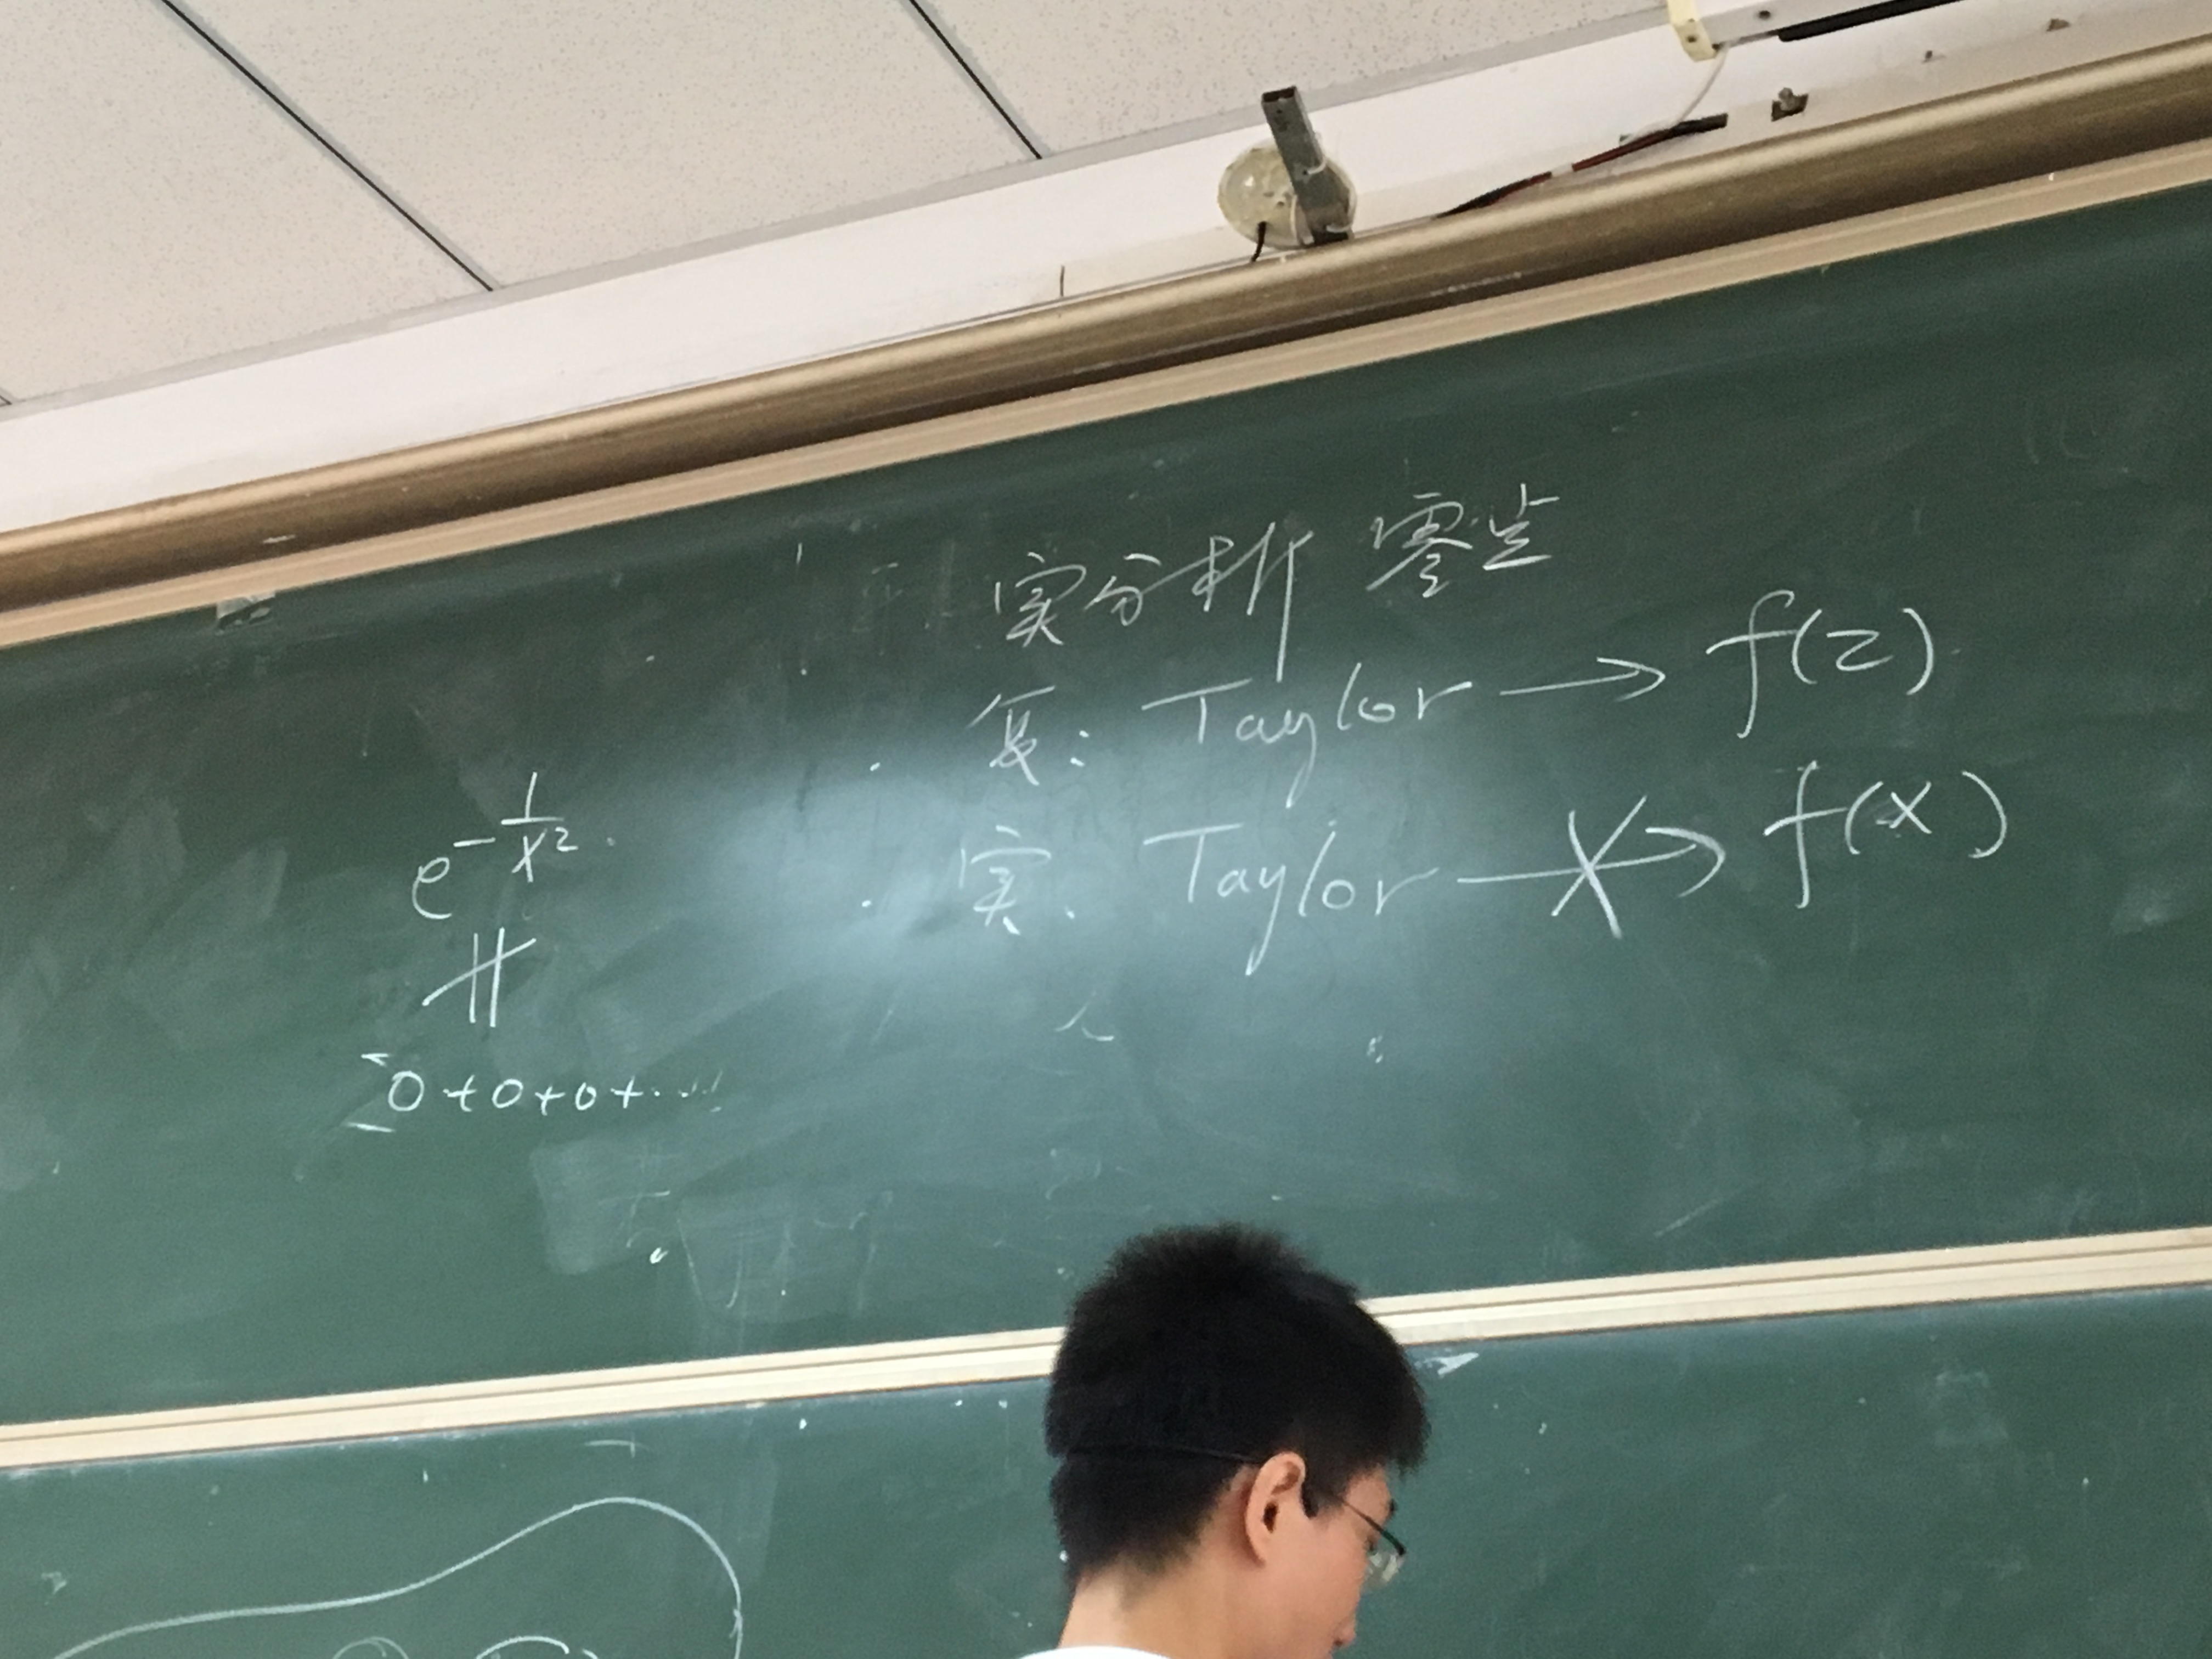 实分析 零点
复: Taylor → f(z)
实: Taylor ↛ f(x)
e^{-\frac{1}{x^2}}
∦
0+0+0+……